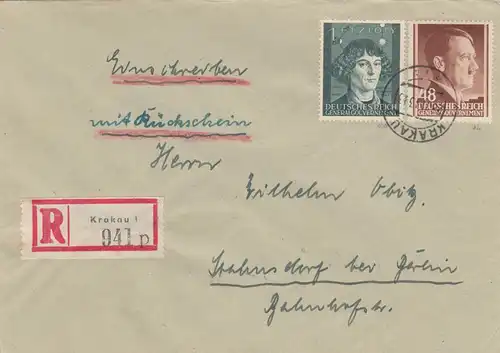 1 ZŁOTY
DEUTSCHES REICH
GENERALGOUVERNEMENT
48
DEUTSCHES REICH
GENERALGOUVERNEMENT
KRAKAU
Einschreiben
mit Rückschein
Herrn
Wilhelm Obitz
R
Krakau 1
941 p
Stahnsdorf bei Berlin
Bahnhofstr.